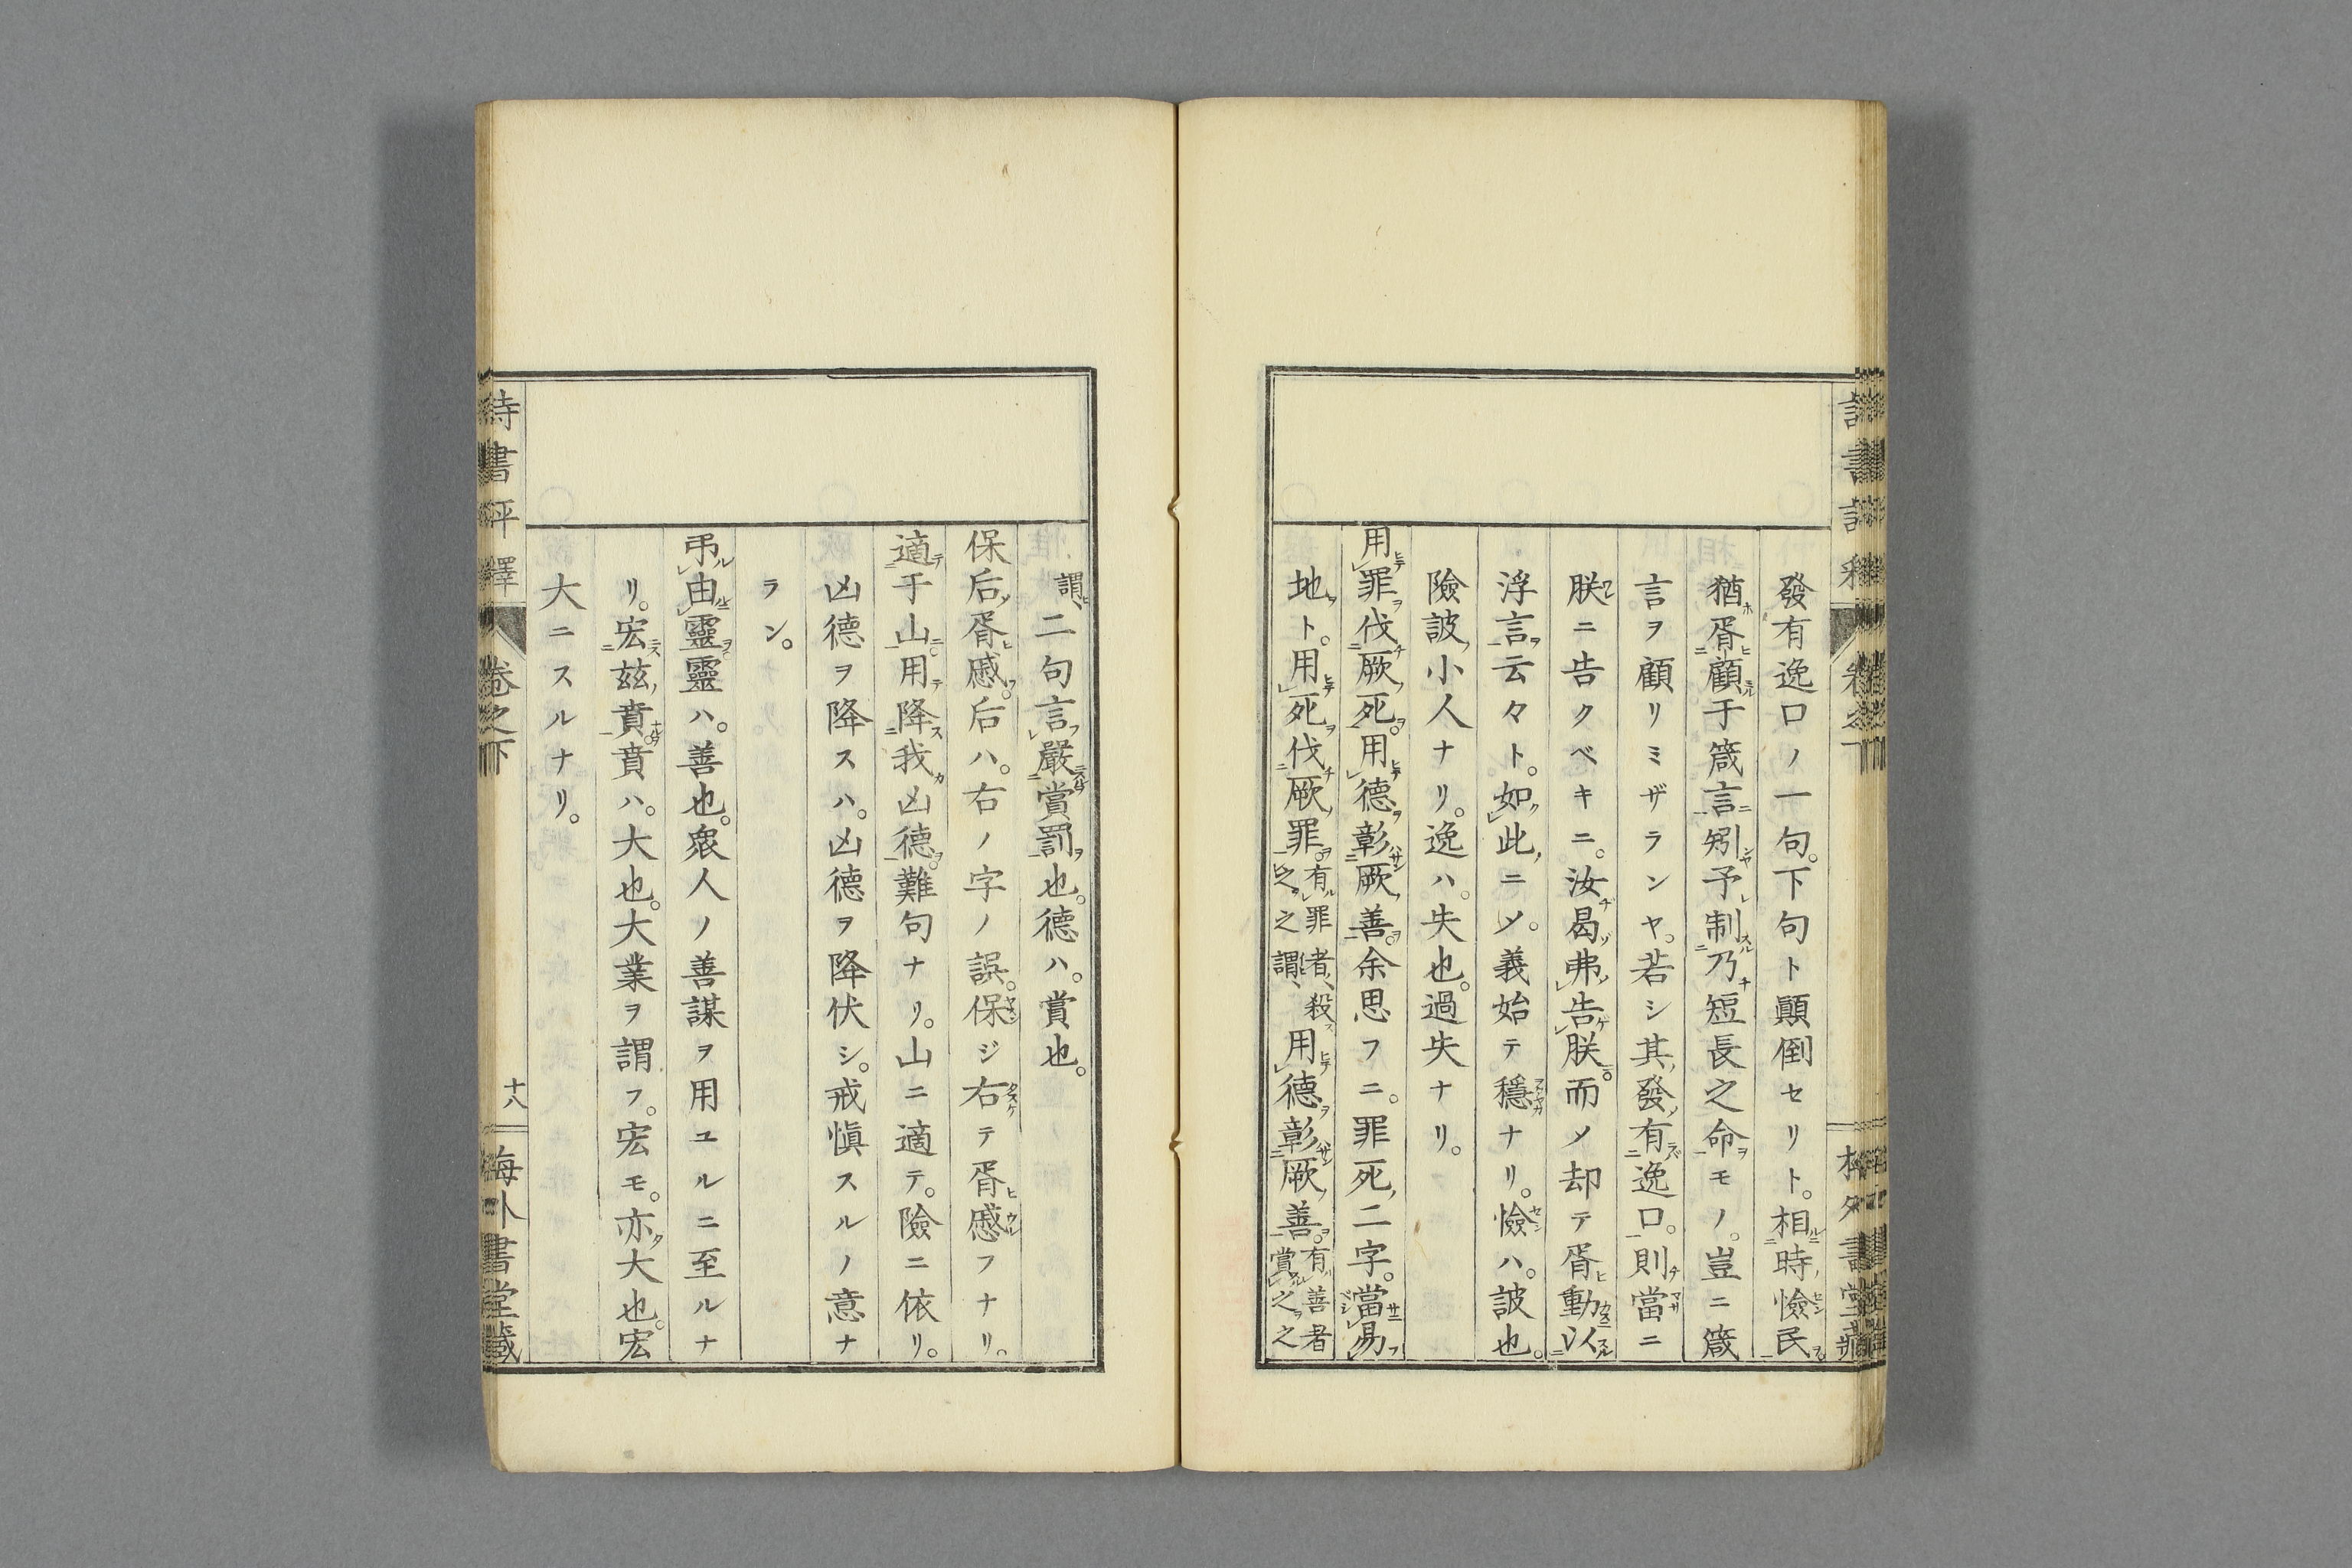 發有逸口ノ一句。下句ト顛倒セリト。相時憸民
猶胥顧于箴言矧予制乃短長之命モノ。豈ニ箴
言ヲ顧リミザランヤ。若シ其發有逸口。則當ニ
朕ニ告クベキニ。汝曷弗告朕而メ却テ胥動以
浮言云々ト。如此ニメ。義始テ穩ナリ。憸ハ。詖也。
險詖小人ナリ。逸ハ。失也。過失ナリ。
用罪伐厥死。用德彰厥善。余思フニ。罪死二字。當易
地ト。用死伐厥罪。有罪者、殺之之謂、用德彰厥善。有善者賞之之
謂、二句言嚴賞罰也。德ハ。賞也。
保后胥慼。后ハ。右ノ字ノ誤。保ジ右テ胥慼フナリ。
適于山。用降我凶德。難句ナリ。山ニ適テ。險ニ依リ。
凶德ヲ降スハ。凶德ヲ降伏シ。戒愼スルノ意ナ
ラン。
弔由靈靈ハ。善也。衆人ノ善謀ヲ用ユルニ至ルナ
リ。宏茲賁賁ハ。大也。大業ヲ謂フ。宏モ。亦大也。宏
大ニスルナリ。
詩書評釋
卷之下
十八
梅外書堂藏